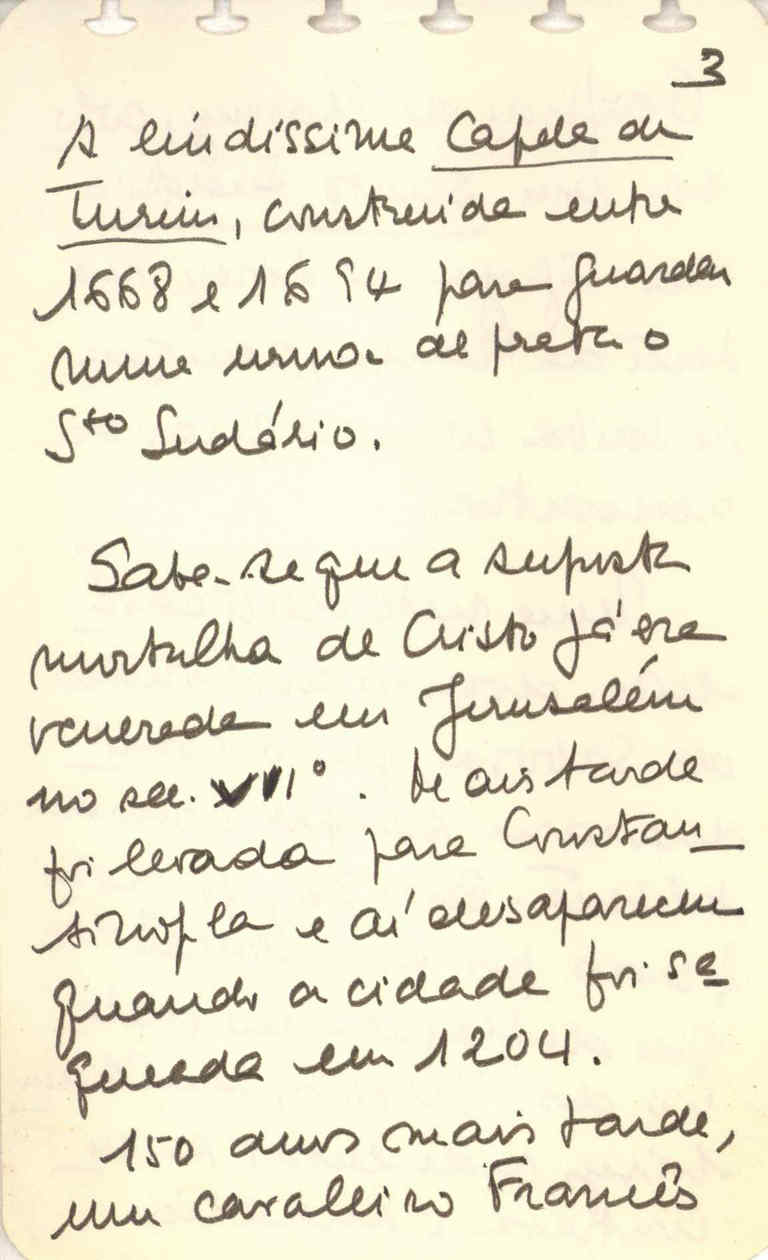 3
A lindíssima Capela de
Turim, construida entre
1668 e 1694 para guardar
numa urna de prata o
Sto Sudário.
Sabe-se que a suposta
mortalha de Cristo já era
venerada em Jerusalém
no sec. VIIº. Mais tarde
foi levada para Constan_
tinopla e aí desapareceu
quando a cidade foi sa_
queada em 1204.
150 anos mais tarde,
um cavaleiro Francês